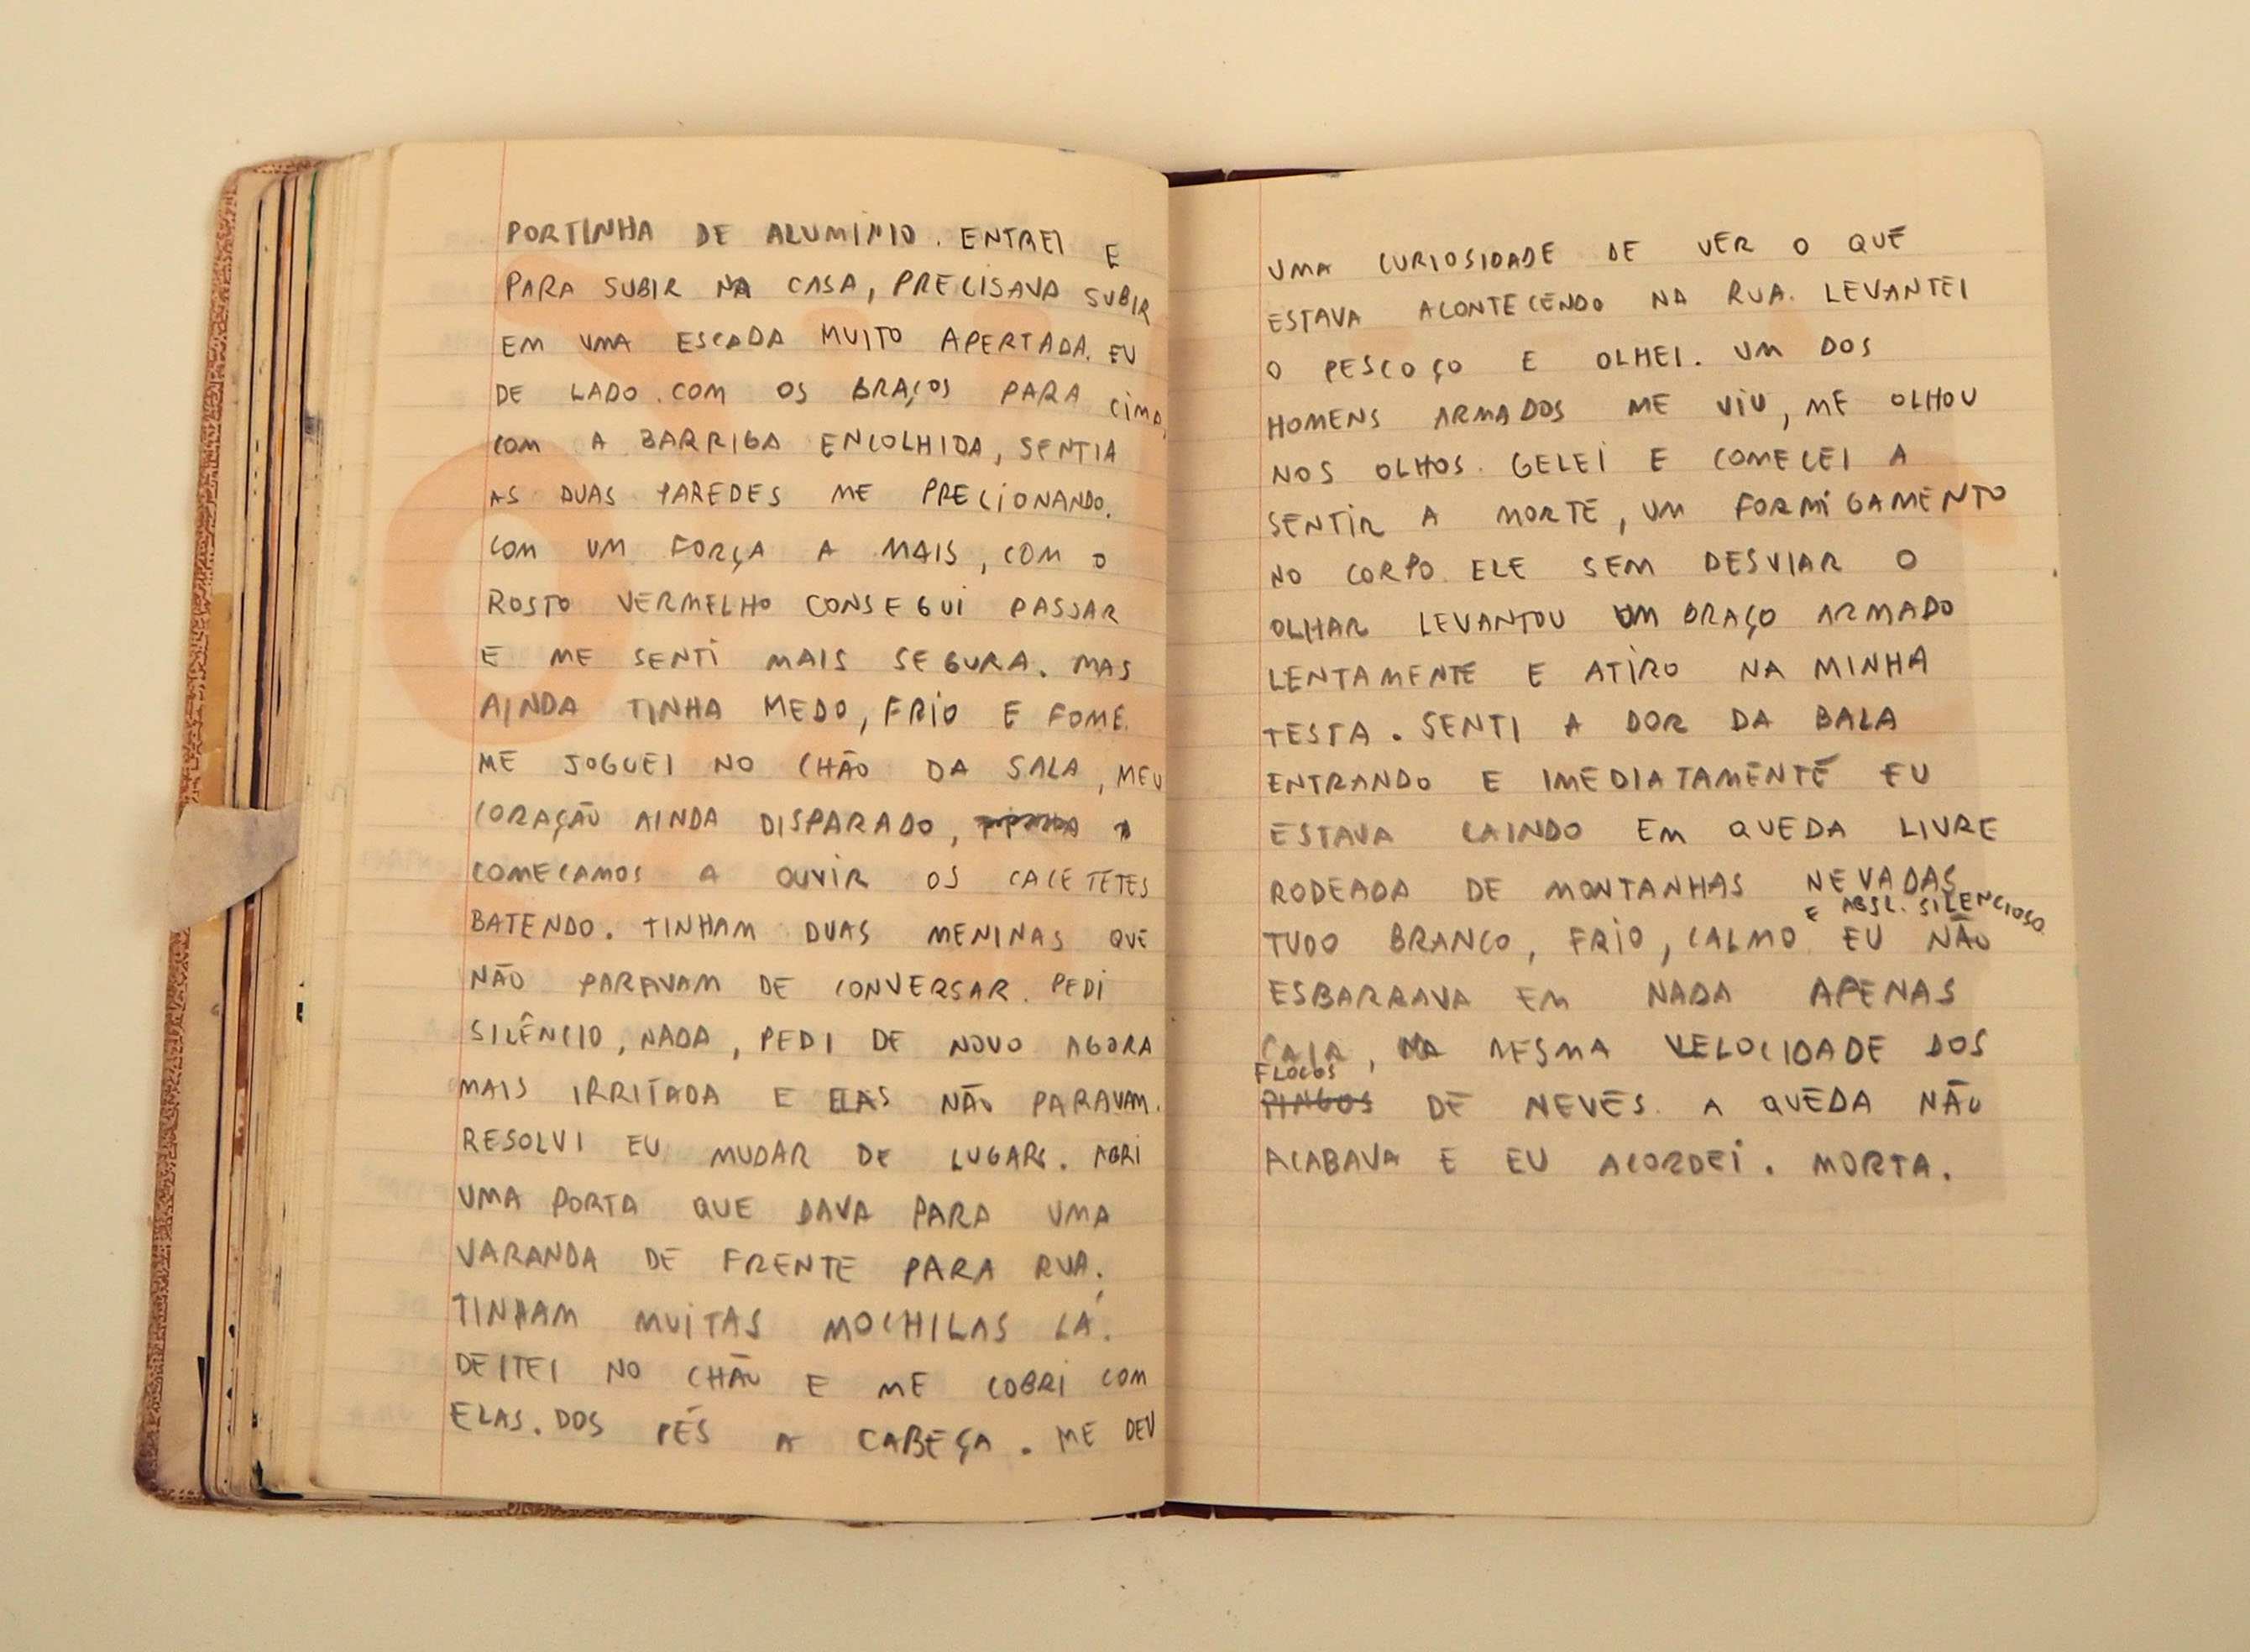 PORTINHA DE ALUMINIO. ENTREI E
PARA SUBIR NA CASA, PRECISAVA SUBIR
EM UMA ESCADA MUITO APERTADA. EU
DE LADO. COM OS BRAÇOS PARA CIMA,
COM A BARRIGA ENCOLHIDA, SENTIA
AS DUAS PAREDES ME PRECIONANDO.
COM UM FORÇA A MAIS, COM O
ROSTO VERMELHO CONSEGUI PASSAR
E ME SENTI MAIS SEGURA. MAS
AINDA TINHA MEDO, FRIO E FOME.
ME JOGUEI NO CHÃO DA SALA, MEU
CORAÇÃO AINDA DISPARADO,
COMECAMOS A OUVIR OS CACETETES
BATENDO. TINHAM DUAS MENINAS QUE
NÃO PARAVAM DE CONVERSAR. PEDI
SILÊNCIO, NADA, PEDI DE NOVO AGORA
MAIS IRRITADA E ELAS NÃO PARAVAM.
RESOLVI EU MUDAR DE LUGAR. ABRI
UMA PORTA QUE DAVA PARA UMA
VARANDA DE FRENTE PARA RUA.
TINHAM MUITAS MOCHILAS LÁ.
DEITEI NO CHÃO E ME COBRI COM
ELAS. DOS PÉS A CABEÇA. ME DEU
UMA CURIOSIDADE DE VER O QUE
ESTAVA ACONTECENDO NA RUA. LEVANTEI
O PESCOÇO E OLHEI. UM DOS
HOMENS ARMADOS ME VIU, ME OLHOU
NOS OLHOS. GELEI E COMECEI A
SENTIR A MORTE, UM FORMIGAMENTO
NO CORPO. ELE SEM DESVIAR O
OLHAR LEVANTOU UM BRAÇO ARMADO
LENTAMENTE E ATIRO NA MINHA
TESTA. SENTI A DOR DA BALA
ENTRANDO E IMEDIATAMENTE EU
ESTAVA CAINDO EM QUEDA LIVRE
RODEADA DE MONTANHAS NEVADAS
E ABSL. SILENCIOSO
TUDO BRANCO, FRIO, CALMO EU NÃO
ESBARRAVA EM NADA APENAS
CAIA, NA MESMA VELOCIDADE DOS
FLOCOS
PINGOS DE NEVES. A QUEDA NÃO
ACABAVA E EU ACORDEI. MORTA.